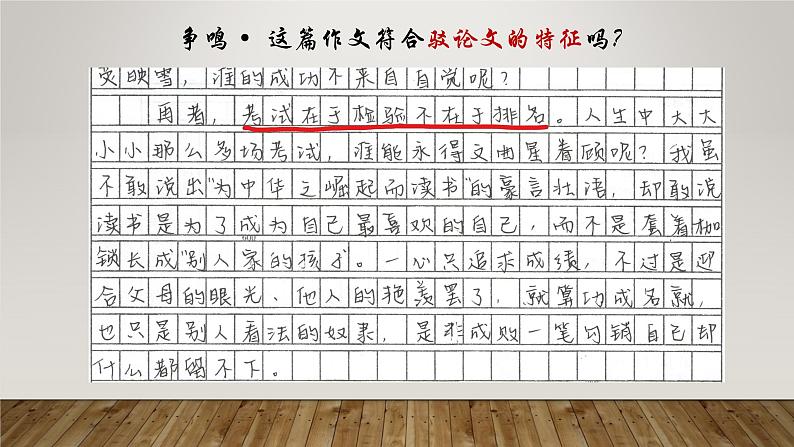 争鸣·这篇作文符合驳论文的特征吗?
灵映雪，谁的成功不来自自觉呢？
再者，考试在于检验不在于排名。人生中大大
小小那么多场考试，谁能永得文曲星眷顾呢？我虽
不敢说出“为中华之崛起而读书”的豪言壮语，却敢说
读书是为了成为自己最喜欢的自己，而不是套着枷
锁长成“别人家的孩子”。一心只追求成绩，不过是迎
600
合父母的眼光、他人的艳羡罢了，就算功成名就，
也只是别人看法的奴隶，是非成败一笔勾销自己却
什么都留不下。